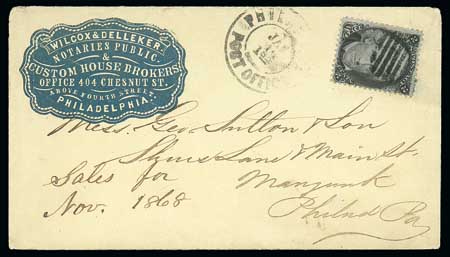 WILCOX & DELLEKER.
NOTARIES PUBLIC.
&
CUSTOM HOUSE BROKERS
OFFICE 404 CHESNUT ST.
ABOVE FOURTH STREET,
PHILADELPHIA.
PHIL
JA
POST OFFI
Mess. Geo Sutton & Son
Lane & Main St.
Sales for
Manyunk
Nov. 1868
Philad Pa